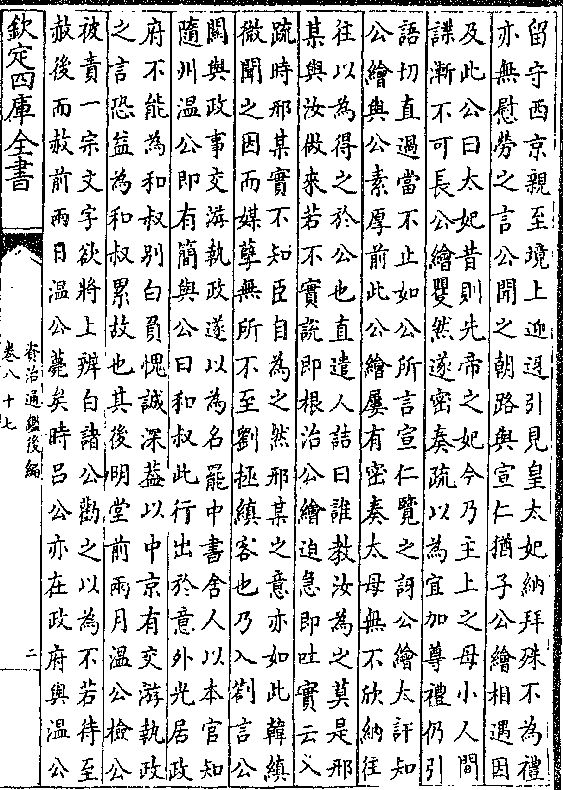 留守西京親至境上迎迓引見皇太妃納拜殊不為禮
亦無慰勞之言公聞之朝路與宣仁猶子公繪相遇因
及此公曰太妃昔則先帝之妃今乃主上之母小人間
諜漸不可長公繪矍然遂密奏疏以為宜加尊禮仍引
語切直過當不止如公所言宣仁覽之訝公繪太訐知
公繪與公素厚前此公繪屢有密奏太母無不欣納往
往以為得之於公也直遣人詰曰誰教汝為之莫是邢
某與汝做來若不實說即根治公繪迫急即吐實云入
疏時邢某實不知臣自為之然邢某之意亦如此韓縝
微聞之因而媒孽無所不至劉極縝客也乃入劄言公
關與政事交游執政遂以為名罷中書舍人以本官知
隨州温公即有簡與公曰和叔此行出於意外光居政
府不能為和叔别白負愧誠深葢以中京有交游執政
之言恐益為和叔累故也其後明堂前兩月温公檢公
被責一宗文字欲將上辨白諸公勸之以為不若待至
赦後而赦前兩日温公薨矣時吕公亦在政府與温公
欽定四庫全書
資治通鑑後編
卷八十七
二